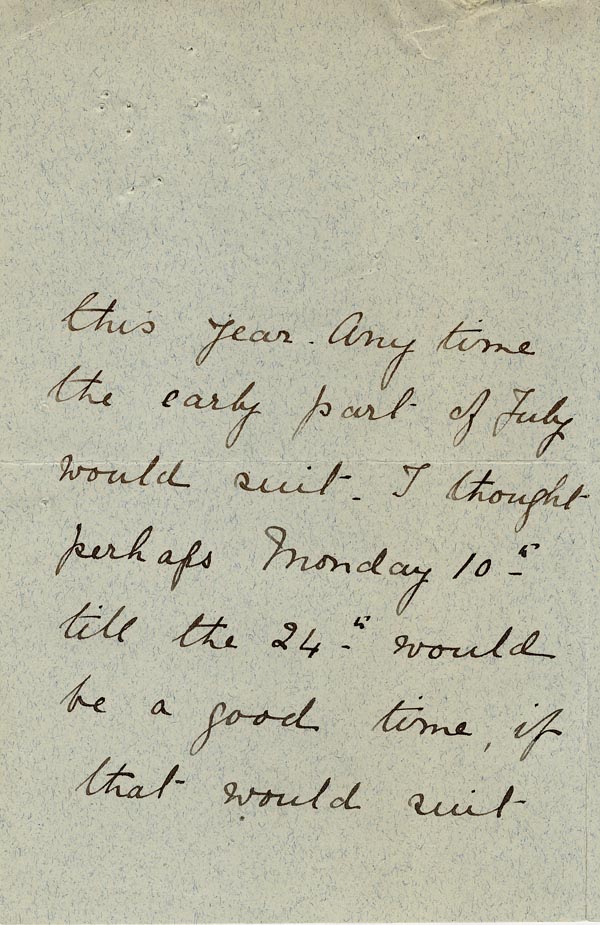 this year. Any time
the early part of July
would suit. I thought
perhaps Monday 10th
till the 24th would
be a good time, if
that would suit